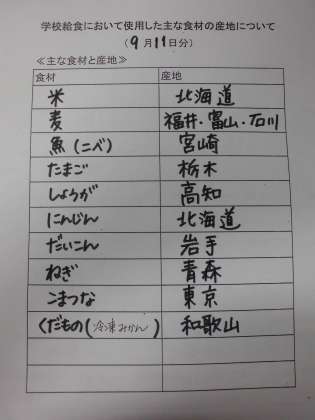 学校給食において使用した主な食材の産地について
(9月11日分)
≪主な食材と産地≫
食材 産地
米 北海道
麦 福井・富山・石川
魚(ニベ) 宮崎
たまご 栃木
しょうが 高知
にんじん 北海道
だいこん 岩手
ねぎ 青森
こまつな 東京
くだもの(冷凍みかん) 和歌山